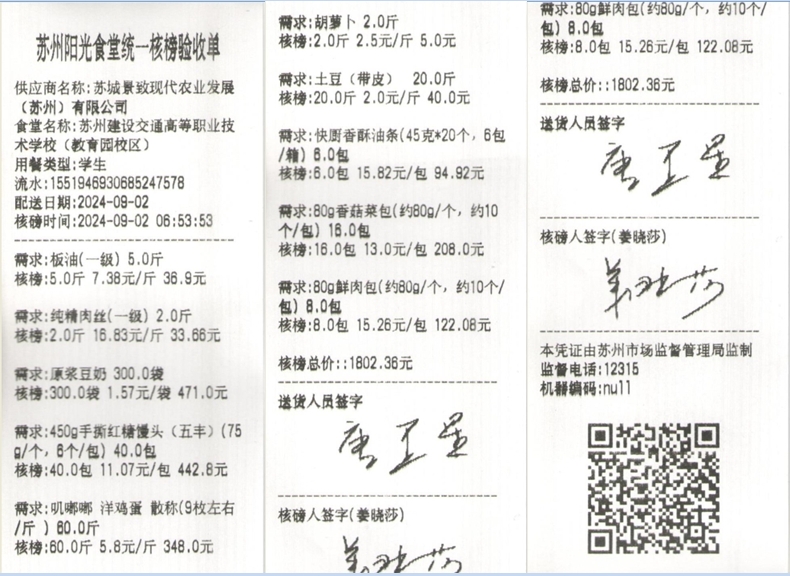 苏州阳光食堂统一核榜验收单
供应商名称:苏城景致现代农业发展
（苏州）有限公司
食堂名称:苏州建设交通高等职业技
术学校（教育园校区）
用餐类型:学生
流水:1551946930685247578
配送日期:2024-09-02
核磅时间:2024-09-02 06:53:53
需求:板油(一级) 5.0斤
核榜:5.0斤 7.38元/斤 36.9元
需求:纯精肉丝(一级) 2.0斤
核榜:2.0斤 16.83元/斤 33.66元
需求:原浆豆奶 300.0袋
核榜:300.0袋 1.57元/袋 471.0元
需求:450g手撕红糖馒头（五丰）(75
g/个，6个/包) 40.0包
核榜:40.0包 11.07元/包 442.8元
需求:叽嘟嘟 洋鸡蛋 散称(9枚左右
/斤 ) 60.0斤
核榜:60.0斤 5.8元/斤 348.0元
需求:胡萝卜 2.0斤
核榜:2.0斤 2.5元/斤 5.0元
需求:土豆（带皮） 20.0斤
核榜:20.0斤 2.0元/斤 40.0元
需求:快厨香酥油条(45克*20个，6包
/箱) 6.0包
核榜:6.0包 15.82元/包 94.92元
需求:80g香菇菜包(约80g/个，约10
个/包) 16.0包
核榜:16.0包 13.0元/包 208.0元
需求:80g鲜肉包(约80g/个，约10个/
包) 8.0包
核榜:8.0包 15.26元/包 122.08元
核榜总价::1802.36元
送货人员签字
唐卫星
核磅人签字(姜晓莎)
需求:80g鲜肉包(约80g/个，约10个/
包) 8.0包
核榜:8.0包 15.26元/包 122.08元
核榜总价::1802.36元
送货人员签字
唐卫星
核磅人签字(姜晓莎)
姜晓莎
本凭证由苏州市场监督管理局监制
监督电话:12315
机器编码:null